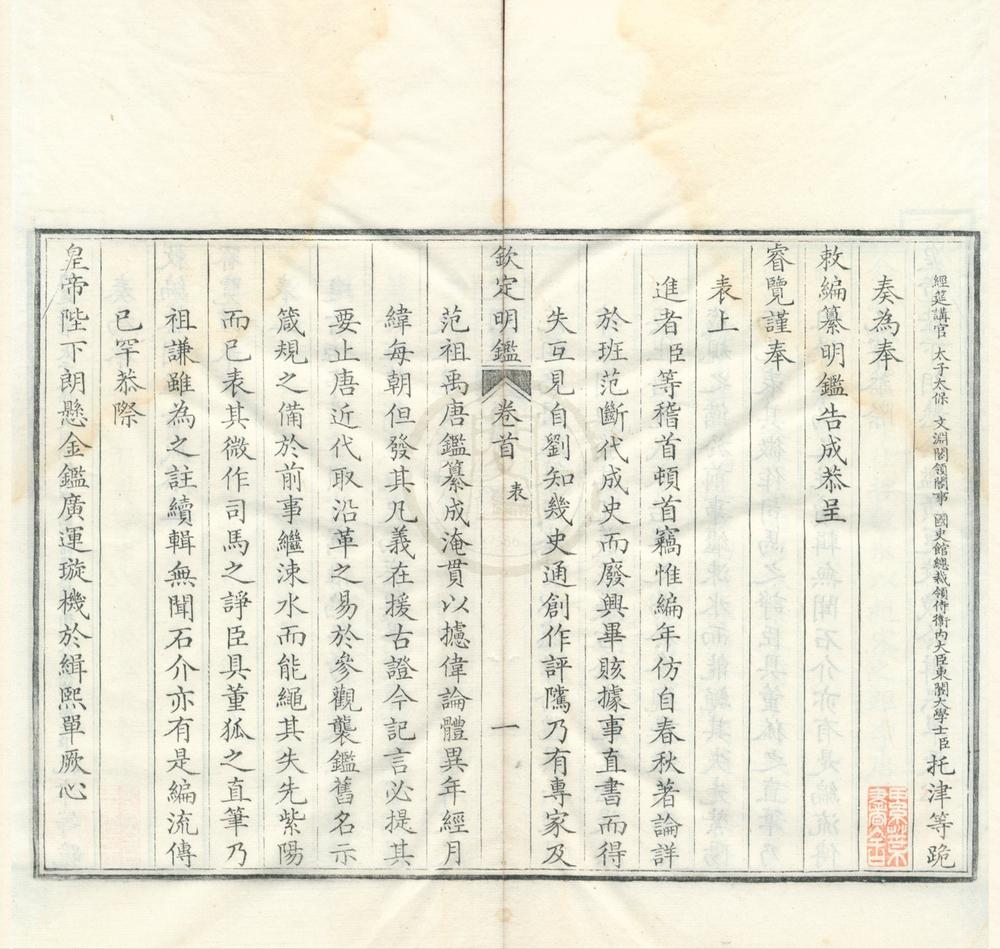 經筵講官 太子太保 文淵閣領閣事 國史館總裁領侍衛內大臣東閣大學士臣托津等跪
奏為奉
敕編纂明鑑告成恭呈
睿覽謹奉
表上
進者臣等稽首頓首竊惟編年仿自春秋著論詳
於班范斷代成史而廢興畢賅據事直書而得
失互見自劉知幾史通創作評隲乃有專家及
欽定明鑑 卷首 表 一
范祖禹唐鑑纂成淹貫以攄偉論體異年經月
緯每朝但發其凡義在援古證今記言必提其
要止唐近代取沿革之易於參觀襲鑑舊名示
箴規之備於前事繼涑水而能繩其失先紫陽
而已表其微作司馬之諍臣具董狐之直筆乃
祖謙雖為之註續輯無聞石介亦有是編流傳
已罕恭際
皇帝陛下朗懸金鑑廣運璇機於緝熙單厥心